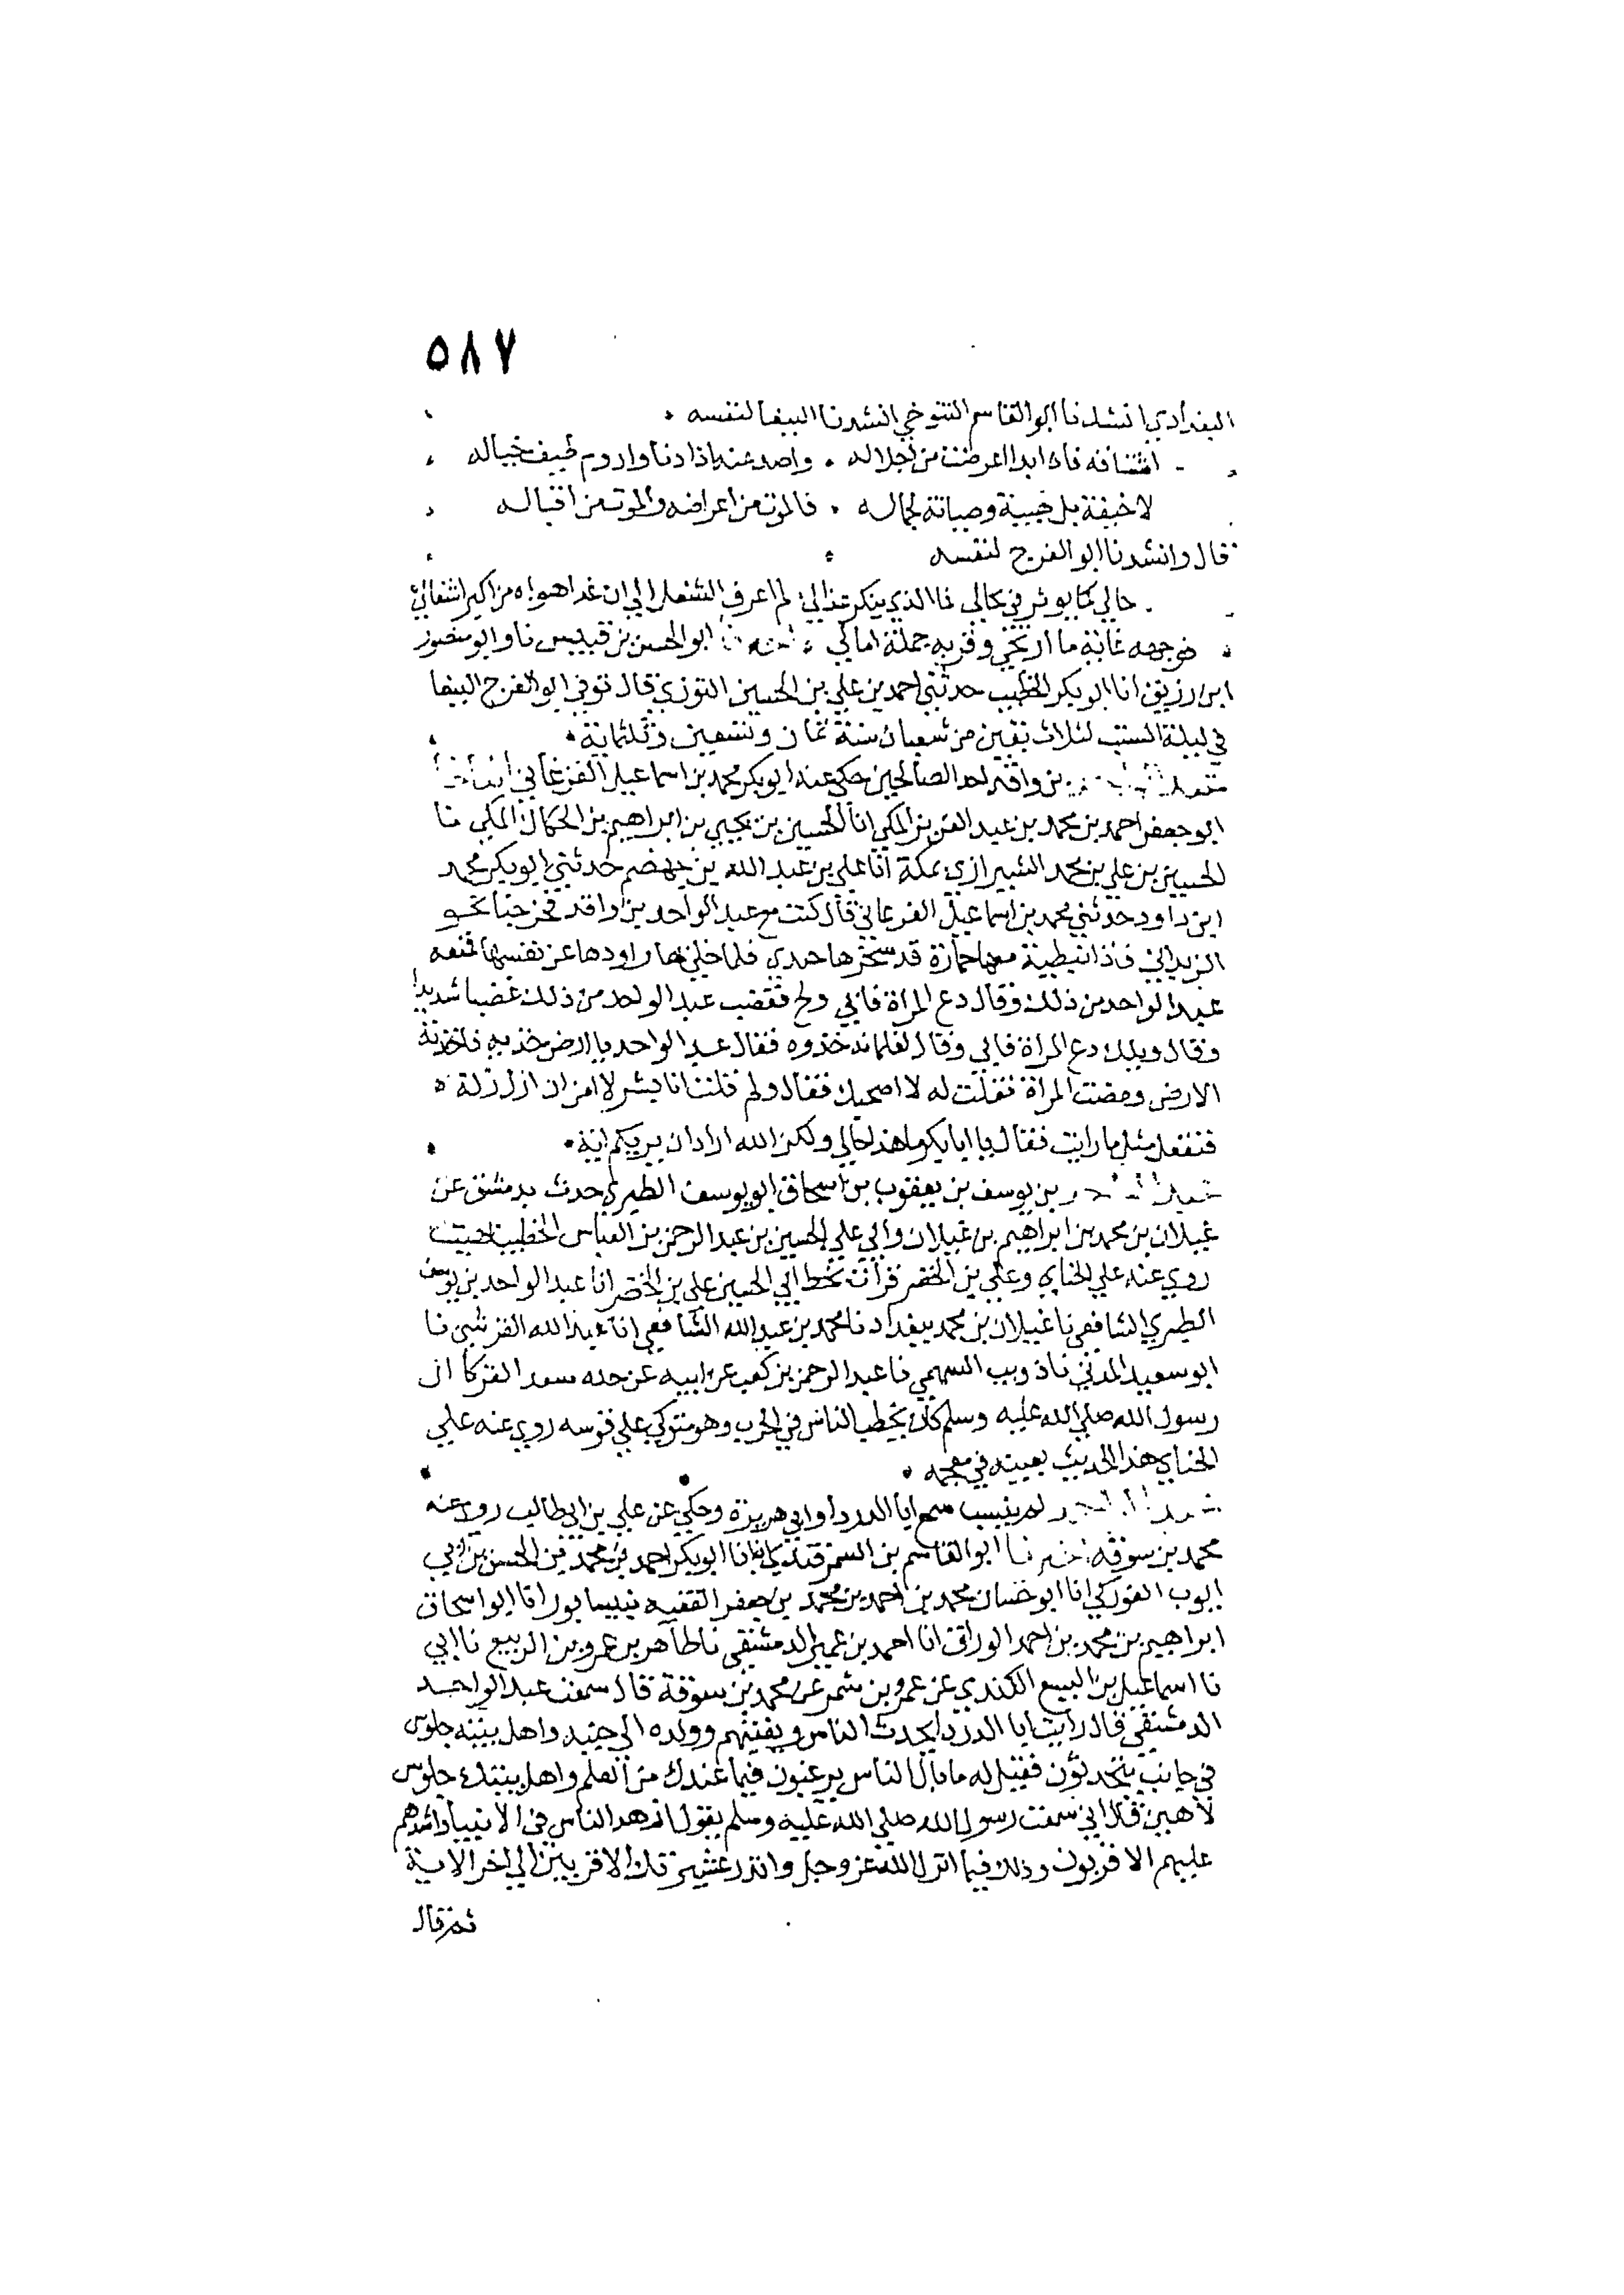 ٥٨٧
البغدادي انشدنا ابو القاسم التنوخي انشدنا الببغا لنفسه
اشتاقه فاذا بدا اعرضت من اجلاله ٠ واصد عنه اذا دنا واروم طيف خياله
لا خيفة بل هيبة وصيانة لجماله ٠ فالموت من اعراضه والموت من اقباله
قال وانشدنا ابو الفرج لنفسه
حالي كما يوثر في حالي فما الذي ينكر عذالي لم اعرف الشغل الي ان غدا هواه من اكبر اشغالي
فوجهه غاية ما ارتجي وقربه جملة امالي ابو الحسن بن قبيس نا وابو منصور
ابن زريق انا ابو بكر الخطيب حدثني احمد بن علي بن الحسين التوزي قال توفي ابو الفرج الببغا
في ليلة السبت لثلاث بقين من شعبان سنة ثمان وتسعين وثلثماية
بن واقد احد الصالحين حكى عنه ابو بكر محمد بن اسماعيل الفرغاني
ابو جعفر احمد بن محمد بن عبد العزيز المكي انا الحسين بن يحيي بن ابراهيم بن الحكاك المكي نا
الحسين بن علي بن محمد الشيرازي بمكة انا علي بن عبد الله بن جهضم حدثني ابو بكر محمد
ابن داود حدثني محمد بن اسماعيل الفرغاني قال كنت مع عبد الواحد بن واقد فخرجنا نحو
فاذا نبطية معها حمارة قد سخرها جندي فلما خلي بها راودها عن نفسها فمنعه
عبد الواحد من ذلك وقال دع المراة فابي ولح فغضب عبد الواحد من ذلك غضبا شديدا
وقال ويلك دع المراة فابي وقال لغلمانه خذوه فقال عبد الواحد يا ارض خذيه فاخذته
الارض ومضت المراة فقلت له لا اصحبك فقال ولم قلت انا بشر لا امن ان ازل زلة
فتفعل مثل ما رايت فقال يا ابا بكر ما هذا حالي ولكن الله اراد ان يريكم اية
بن يوسف بن يعقوب بن اسحاق ابو يوسف الطبري حدث بدمشق عن
غيلان بن محمد بن ابراهيم بن غيلان وابي علي الحسين بن عبد الرحمن بن العباس الخطيب
روي عنه علي الحناي وعلي بن الخضر قرات بخط ابي الحسين علي بن الخضر انا عبد الواحد بن يوسف
الطبري الشافعي نا غيلان بن محمد ببغداد نا محمد بن عبد الله الشافعي انا عبد الله القرشي نا
ابو سعيد المدني نا ذويب السهمي نا عبد الرحمن بن كعب عن ابيه عن جده سعد القرظ ان
رسول الله صلي الله عليه وسلم كان يخطب الناس في الحرب وهو متوكي علي قوسه روي عنه علي
الحناي هذا الحديث بعينه في معجمه
لم ينسب سمع ابا الدردا وابي هريرة وحكي عن علي بن ابي طالب روي عنه
محمد بن سوقه اخبرنا ابو القاسم بن السمرقندي انا ابو بكر احمد بن محمد بن الحسن بن ابي
ايوب الفوركي انا ابو حسان محمد بن احمد بن محمد بن جعفر الفقيه بنيسابور انا ابو اسحاق
ابراهيم بن محمد بن احمد الوراق انا احمد بن عمير الدمشقي نا طاهر بن عمرو بن الربيع نا ابي
نا اسماعيل بن اليسع الكندي عن عمرو بن شمر عن محمد بن سوقة قال سمعت عبد الواحد
الدمشقي قال رايت ابا الدردا يحدث الناس ويفتيهم وولده الي جنبه واهل بيته جلوس
في جانب يتحدثون فقيل له ما بال الناس يرغبون فيما عندك من العلم واهل بيتك جلوس
لاهين قال اني سمعت رسول الله صلي الله عليه وسلم يقول ازهد الناس في الانبيا واشدهم
عليهم الاقربون وذلك فيما انزل الله عز وجل وانذر عشيرتك الاقربين الي اخر الاية
ثم قال